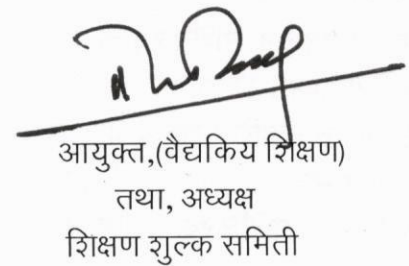 आयुक्त,(वैद्यकिय शिक्षण)
तथा, अध्यक्ष
शिक्षण शुल्क समिती